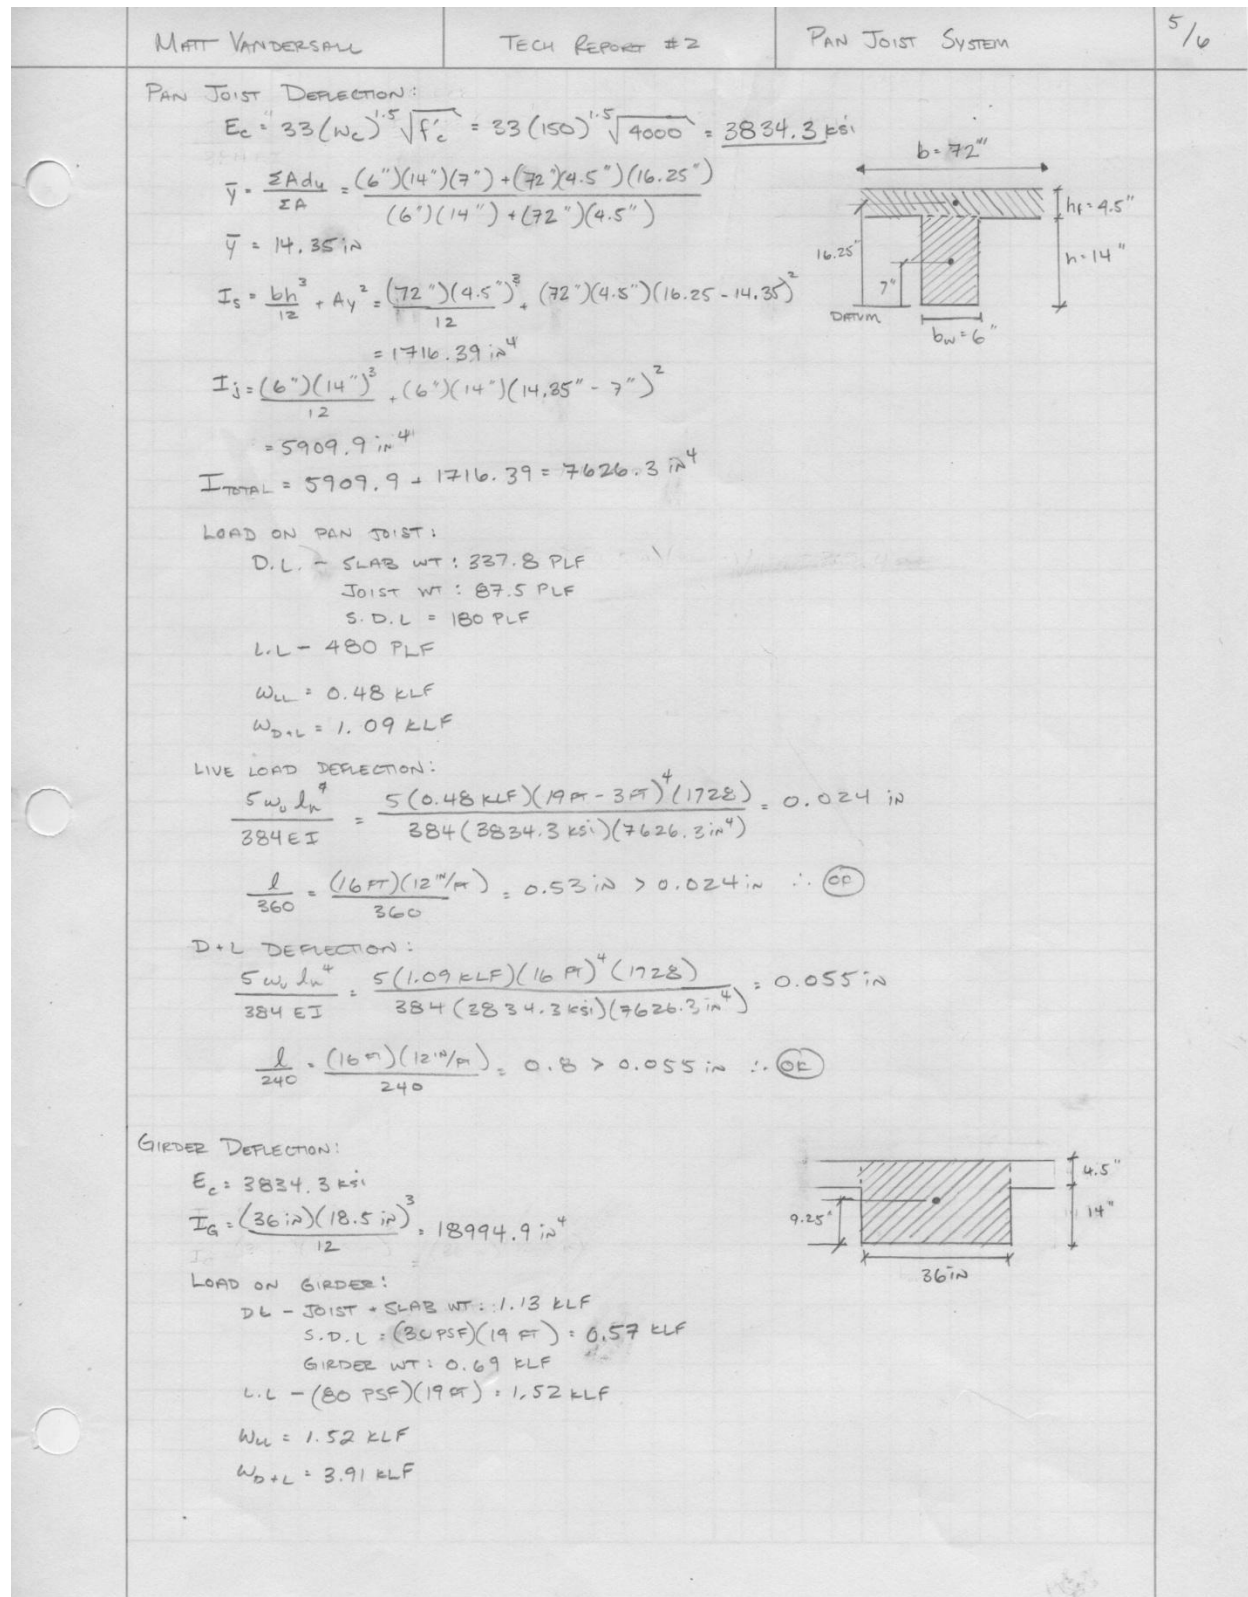 MATT VANDERSALL TECH REPORT #2 PAN JOIST SYSTEM 5/6
PAN JOIST DEFLECTION:
Ec = 33(wc)^1.5 √f'c = 33(150)^1.5 √4000 = 3834.3 ksi
b = 72"
ȳ = ΣAdy / ΣA = (6")(14")(7") + (72")(4.5")(16.25") / (6")(14") + (72")(4.5")
hf = 4.5"
ȳ = 14.35 in
16.25"
h = 14"
7"
Is = bh^3/12 + Ay^2 = (72")(4.5")^3/12 + (72")(4.5")(16.25 - 14.35)^2
DATUM
bw = 6"
= 1716.39 in^4
Ij = (6")(14")^3/12 + (6")(14")(14.35" - 7")^2
= 5909.9 in^4
ITOTAL = 5909.9 + 1716.39 = 7626.3 in^4
LOAD ON PAN JOIST:
D.L. - SLAB WT: 337.8 PLF
JOIST WT: 87.5 PLF
S.D.L = 180 PLF
L.L - 480 PLF
WLL = 0.48 KLF
WD+L = 1.09 KLF
LIVE LOAD DEFLECTION:
5 wu ln^4 / 384EI = 5(0.48 KLF)(19 FT - 3 FT)^4(1728) / 384(3834.3 ksi)(7626.3 in^4) = 0.024 in
l/360 = (16 FT)(12 in/FT)/360 = 0.53 in > 0.024 in ∴ OK
D+L DEFLECTION:
5 wu ln^4 / 384 EI = 5(1.09 KLF)(16 FT)^4(1728) / 384(3834.3 ksi)(7626.3 in^4) = 0.055 in
l/240 = (16 FT)(12 in/FT)/240 = 0.8 > 0.055 in ∴ OK
GIRDER DEFLECTION:
Ec = 3834.3 ksi
4.5"
IG = (36 in)(18.5 in)^3/12 = 18994.9 in^4
9.25"
14"
36 in
LOAD ON GIRDER:
DL - JOIST + SLAB WT: 1.13 KLF
S.D.L = (30 PSF)(19 FT) = 0.57 KLF
GIRDER WT: 0.69 KLF
L.L - (80 PSF)(19 FT) = 1.52 KLF
WLL = 1.52 KLF
WD+L = 3.91 KLF